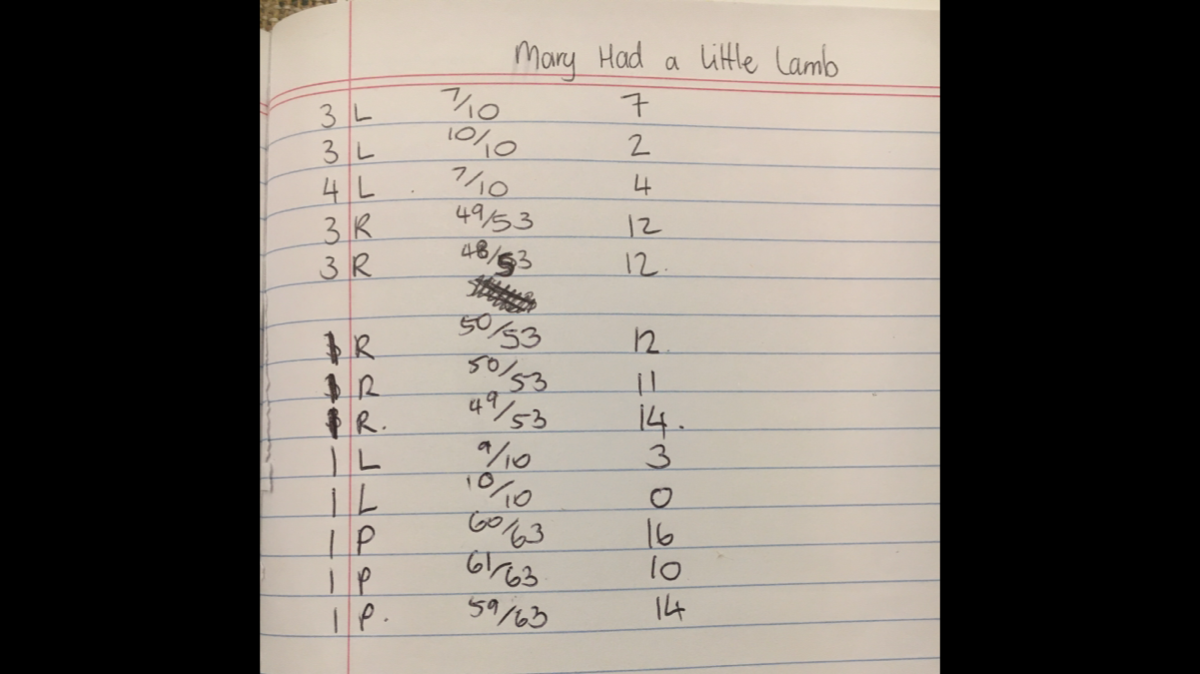 Mary Had a Little Lamb
3 L 7/10 7
3 L 10/10 2
4 L 7/10 4
3 R 49/53 12
3 R 48/53 12.
1 R 50/53 12.
1 R 50/53 11
1 R. 49/53 14.
1 L 9/10 3
1 L 10/10 0
1 P 60/63 16
1 P 61/63 10
1 P. 59/63 14